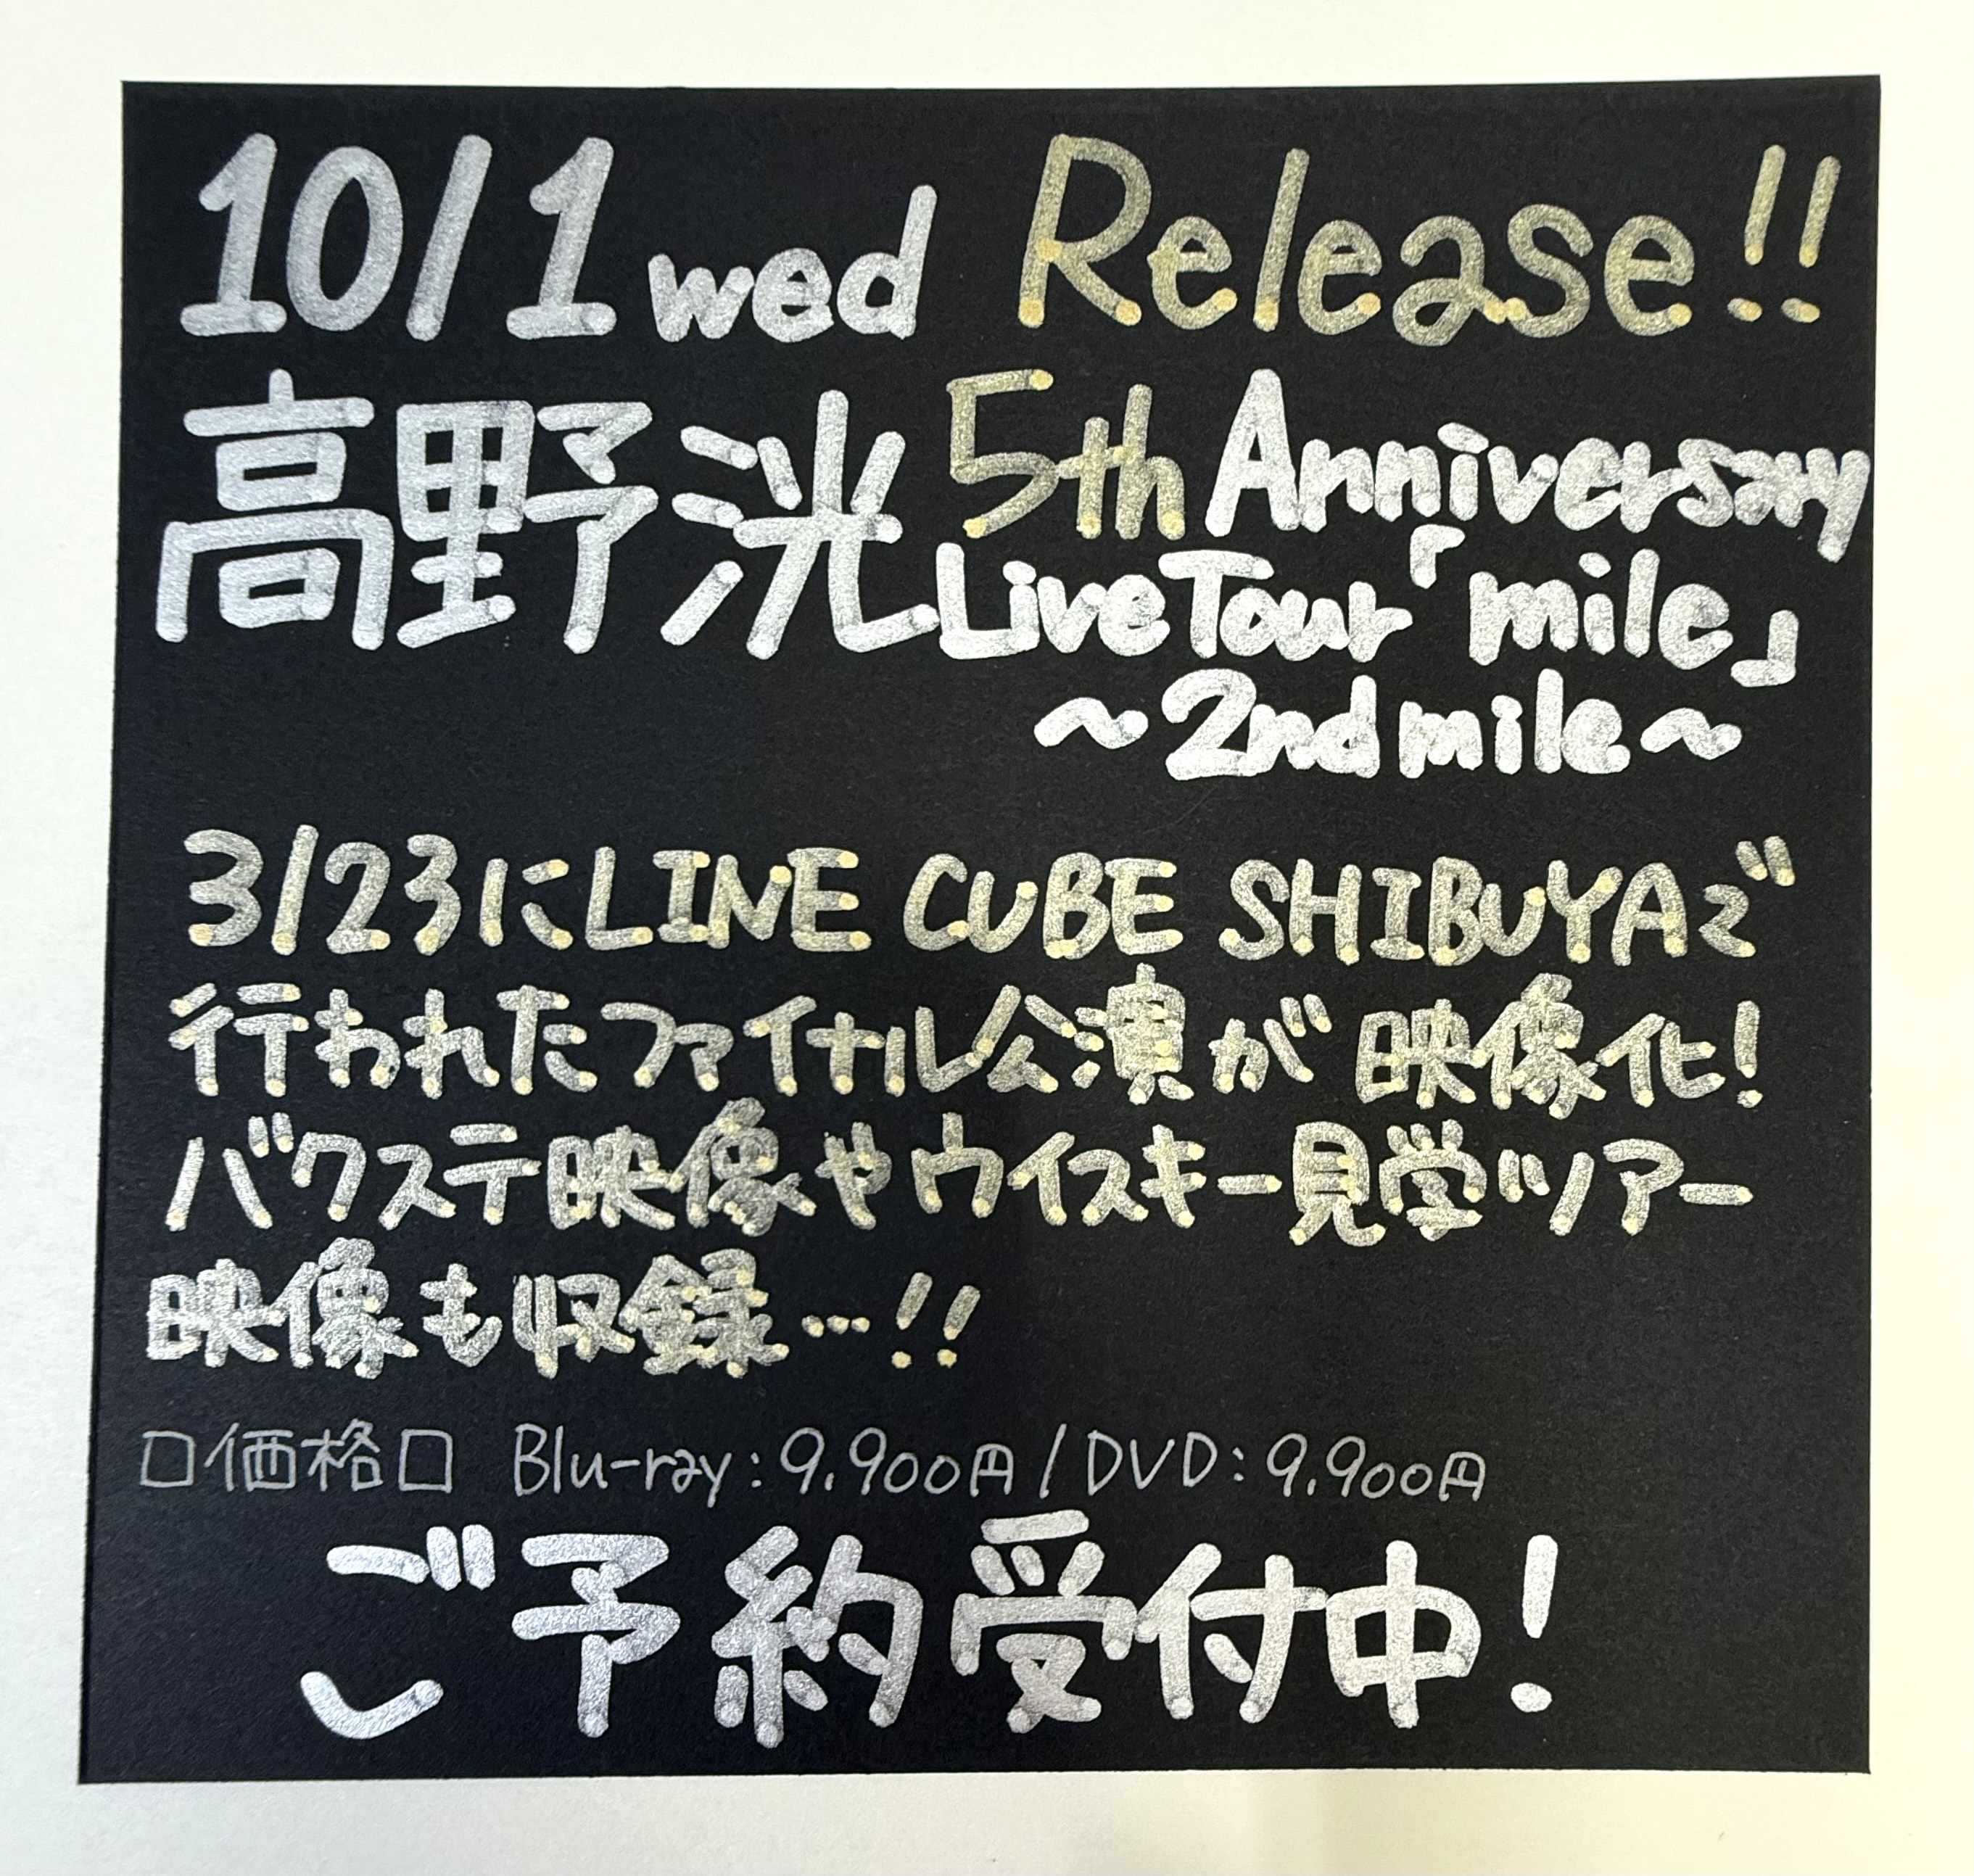 10/1 wed Release!!
高野洸 5th Anniversary
Live Tour「mile」
～2nd mile～
3/23にLINE CUBE SHIBUYAで
行われたファイナル公演が映像化!
バクステ映像やウイスキー見学ツアー
映像も収録…!!
□価格□ Blu-ray:9.900円/DVD:9.900円
ご予約受付中!